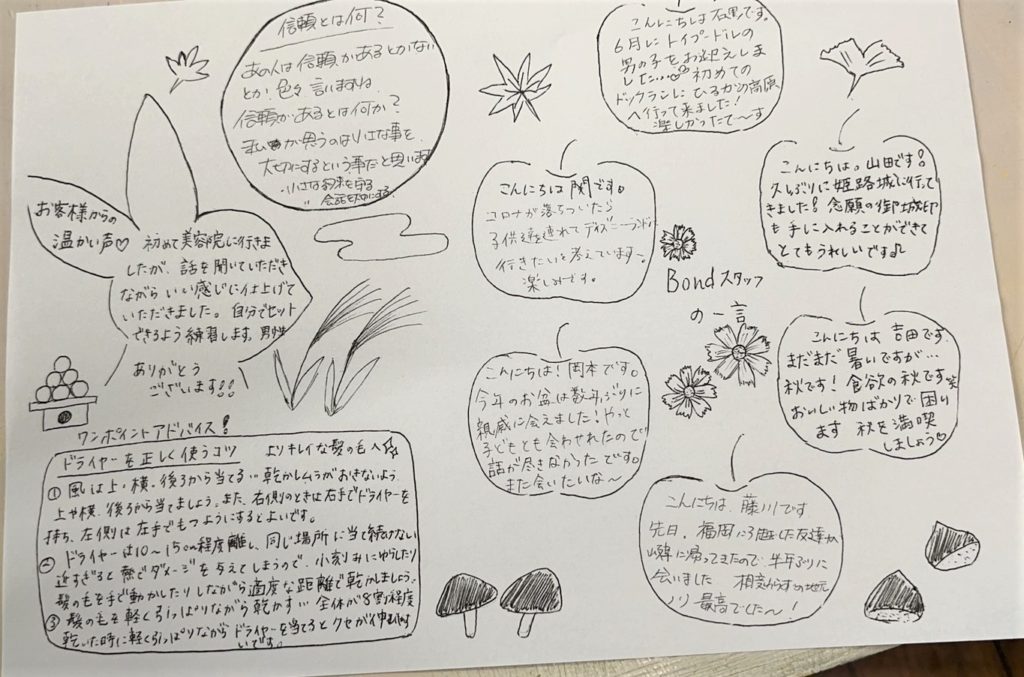 信頼とは何?
あの人は信頼があるとかない
とか、色々言いますね
信頼があるとは何か?
私が思うのは小さな事を、
大切にするという事だと思います
小さな約束を守る
会話を大切にする
こんにちは石黒です。
6月にトイプードルの
男の子をお迎えしま
した。初めての
ドックランにひるがの高原
へ行って来ました!
楽しかったで~す
こんにちは。山田です!
久しぶりに姫路城に行って
きました!念願の御城印
も手に入れることができて
とてもうれしいです♫
こんにちは関です。
コロナが落ちついたら
子供達を連れてディズニーランドに
行きたいと考えています。
楽しみです。
Bondスタッフ
の一言
お客様からの
温かい声♡
初めて美容院に行きま
したが、話を聞いていただき
ながらいい感じに仕上げて
いただきました。自分でセット
できるよう練習します。男性
ありがとう
ございます!!
こんにちは 吉田です
まだまだ暑いですが…
秋です!食欲の秋です笑
おいしい物ばかりで困り
ます 秋を満喫
しましょう♡
こんにちは!岡本です。
今年のお盆は数年ぶりに
親戚に会えました!やっと
子どもとも会わせれたので
話が尽きなかったです。
また会いたいな~
こんにちは、藤川です
先日、福岡に
帰ってきたので
会いました
最高でした~!
ワンポイントアドバイス!
ドライヤーを正しく使うコツ よりキレイな髪の毛へ☆
① 風は上・横・後ろから当てる… 乾かしムラがおきないよう
上や横、後ろから当てましょう。また、右側のときは右手でドライヤーを
持ち、左側は左手でもつようにするとよいです。
② ドライヤーは10~15cm程度離し、同じ場所に当て続けない
近すぎると熱でダメージを与えてしまうので、小刻みにゆらしたり
髪の毛を手で動かしたりしながら適度な距離で乾かしましょう。
③ 髪の毛を軽く引っぱりながら乾かす… 全体が8割程度
乾いた時に軽く引っぱりながらドライヤーを当てるとクセが伸びやす
いです。